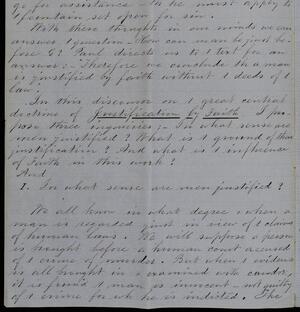 go for assistance - to he must apply to
fountain set open for sin.
With these thoughts in our minds we can
answer t question - How can man be just be-
fore G? Paul directs us to t text for an
answer: - Therefore we conclude th a man
is justified by faith without t deeds of t
law.
In this discussion on t great central
doctrine of Justification by Faith I pur-
pose three inquiries: - In what sense are
men justified? What is t ground of th
justification? And what is t influence
of Faith in this work?
And
1. In what sense are men justified?
We all know in what degree & when a
man is regarded just in view of t claims
of human laws. We will suppose a person
is brought before a human court accused
of t crime of murder. But when t evidence
is all brought in & examined with candor,
it is found t man is innocent - not guilty
of t crime for wh he is indicted. The